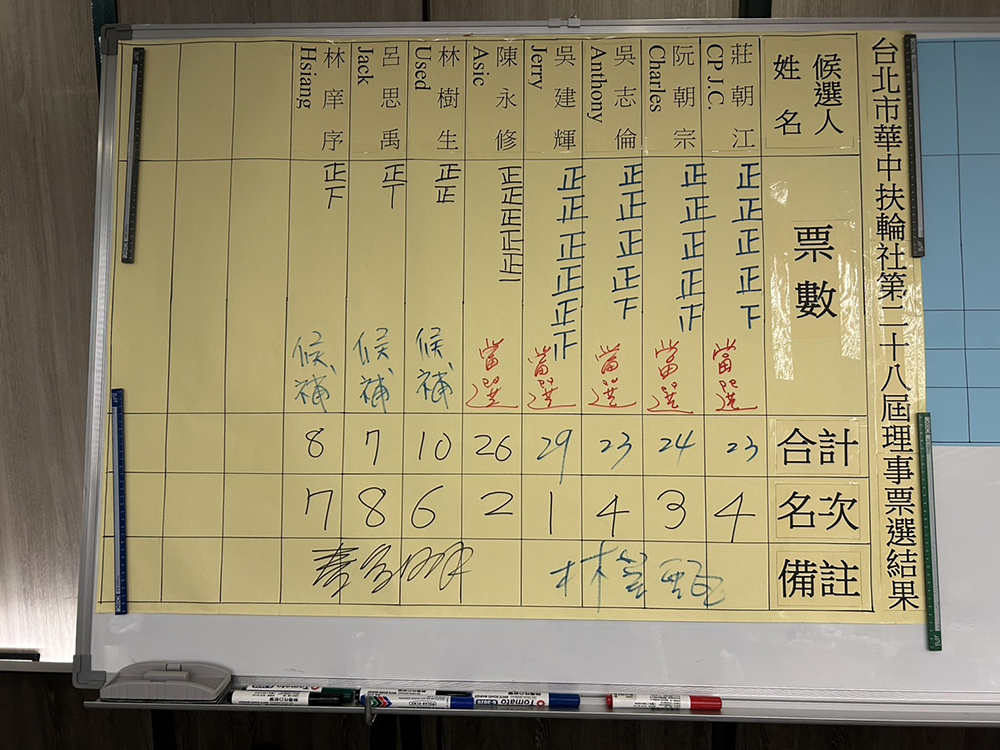 台北市華中扶輪社第二十八屆理事票選結果
候選人
姓名
票數
合計
名次
備註
莊朝江
CP J.C.
正正正正下
當選
23
4
阮朝宗
Charles
當選
24
3
吳志倫
Anthony
正正正正下
當選
23
4
吳建輝
Jerry
當選
29
1
陳永修
Asic
當選
26
2
林樹生
Used
正正
候補
10
6
呂思禹
Jack
候補
7
8
林庠序
Hsiang
正下
候補
8
7
Tomato